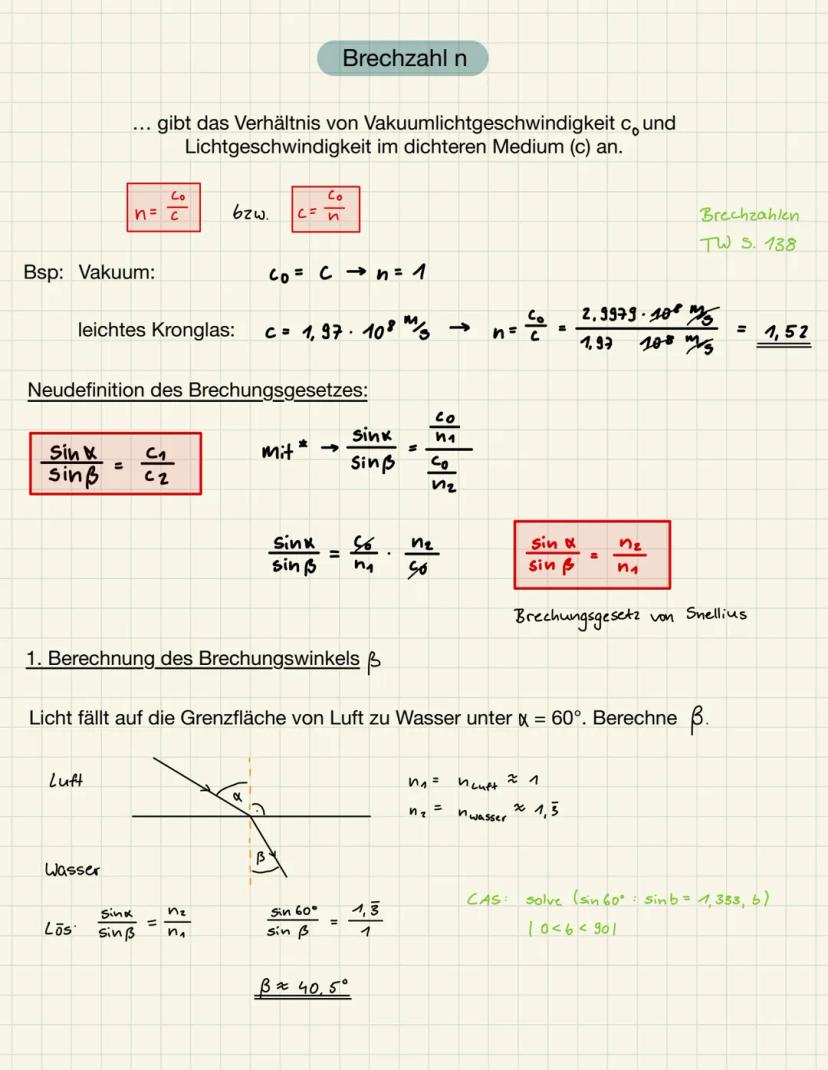 Brechzahl n
... gibt das Verhältnis von Vakuumlichtgeschwindigkeit c₀ und
Lichtgeschwindigkeit im dichteren Medium (c) an.
n = c₀/c bzw. c = c₀/n
Brechzahlen
TW S. 138
Bsp: Vakuum: c₀ = c → n = 1
leichtes Kronglas: c = 1,97 · 10⁸ m/s → n = c₀/c = 2,9979 · 10⁸ m/s / 1,97 10⁸ m/s = 1,52
Neudefinition des Brechungsgesetzes:
sin α / sin β = c₁/c₂ mit * → sin α / sin β = (c₀/n₁) / (c₀/n₂)
sin α / sin β = c₀/n₁ · n₂/c₀ sin α / sin β = n₂/n₁
Brechungsgesetz von Snellius
1. Berechnung des Brechungswinkels β
Licht fällt auf die Grenzfläche von Luft zu Wasser unter α = 60°. Berechne β.
Luft
α
n₁ = n Luft ≈ 1
n₂ = n wasser ≈ 1,3̄
β
Wasser
Lös: sin α / sin β = n₂/n₁ sin 60° / sin β = 1,3̄ / 1
CAS: solve (sin 60° : sin b = 1,333, b)
| 0 < b < 90|
β ≈ 40,5°